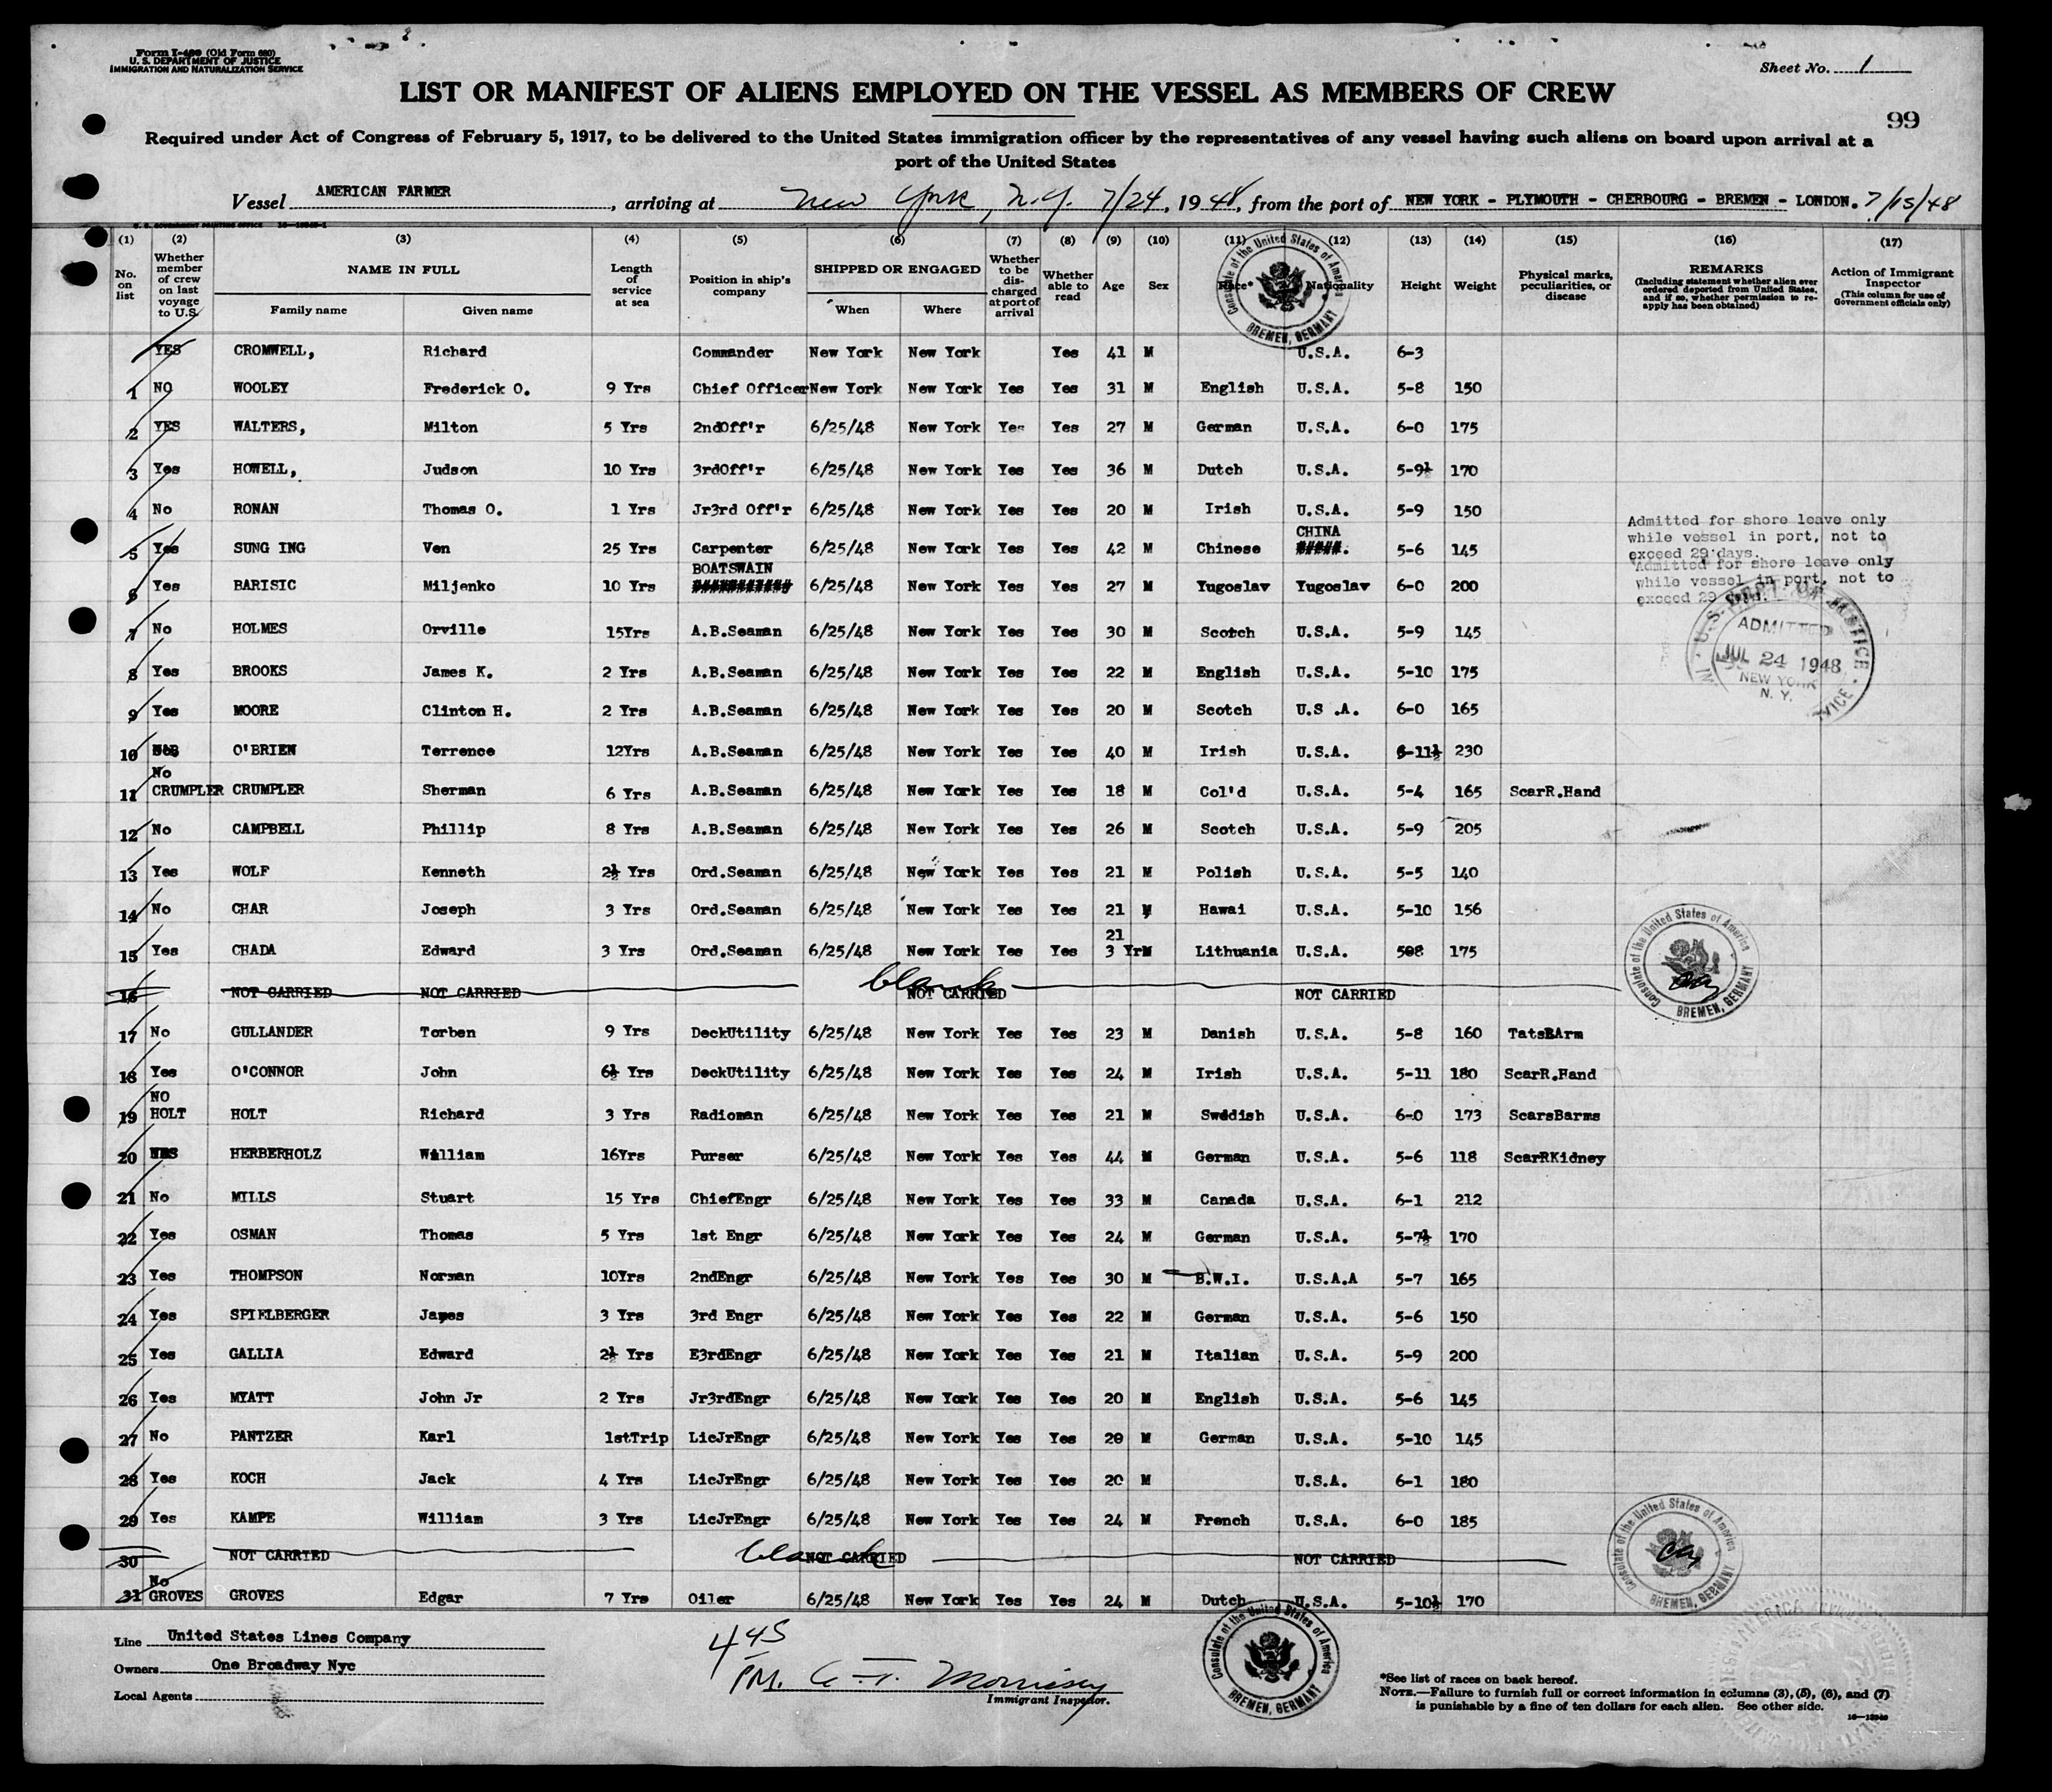 Form I-480 (Old Form 680)
U. S. DEPARTMENT OF JUSTICE
IMMIGRATION AND NATURALIZATION SERVICE
Sheet No. 1
LIST OR MANIFEST OF ALIENS EMPLOYED ON THE VESSEL AS MEMBERS OF CREW
99
Required under Act of Congress of February 5, 1917, to be delivered to the United States immigration officer by the representatives of any vessel having such aliens on board upon arrival at a
port of the United States
Vessel AMERICAN FARMER, arriving at New York, N.Y. 7/24, 1948, from the port of NEW YORK - PLYMOUTH - CHERBOURG - BREMEN - LONDON. 7/15/48
(1) (2) (3) (4) (5) (6) (7) (8) (9) (10) (11) (12) (13) (14) (15) (16) (17)
No. on list
Whether member of crew on last voyage to U.S.
NAME IN FULL
Family name Given name
Length of service at sea
Position in ship's company
SHIPPED OR ENGAGED
When Where
Whether to be discharged at port of arrival
Whether able to read
Age
Sex
Race*
Nationality
Height
Weight
Physical marks, peculiarities, or disease
REMARKS
(Including statement whether alien ever ordered deported from United States, and if so, whether permission to reapply has been obtained)
Action of Immigrant Inspector
(This column for use of Government officials only)
Consulate of the United States of America
BREMEN, GERMANY
YES CROMWELL, Richard Commander New York New York Yes 41 M U.S.A. 6-3
1 NO WOOLEY Frederick O. 9 Yrs Chief Officer New York New York Yes Yes 31 M English U.S.A. 5-8 150
2 YES WALTERS, Milton 5 Yrs 2ndOff'r 6/25/48 New York Yes Yes 27 M German U.S.A. 6-0 175
3 Yes HOWELL, Judson 10 Yrs 3rdOff'r 6/25/48 New York Yes Yes 36 M Dutch U.S.A. 5-9½ 170
4 No RONAN Thomas O. 1 Yrs Jr3rd Off'r 6/25/48 New York Yes Yes 20 M Irish U.S.A. 5-9 150
5 Yes SUNG ING Ven 25 Yrs Carpenter 6/25/48 New York Yes Yes 42 M Chinese CHINA 5-6 145 Admitted for shore leave only while vessel in port, not to exceed 29 days.
6 Yes BARISIC Miljenko 10 Yrs BOATSWAIN 6/25/48 New York Yes Yes 27 M Yugoslav Yugoslav 6-0 200 Admitted for shore leave only while vessel in port, not to exceed 29
U.S. DEPT. OF JUSTICE
ADMITTED
JUL 24 1948
NEW YORK
N. Y.
7 No HOLMES Orville 15Yrs A.B.Seaman 6/25/48 New York Yes Yes 30 M Scotch U.S.A. 5-9 145
8 Yes BROOKS James K. 2 Yrs A.B.Seaman 6/25/48 New York Yes Yes 22 M English U.S.A. 5-10 175
9 Yes MOORE Clinton H. 2 Yrs A.B.Seaman 6/25/48 New York Yes Yes 20 M Scotch U.S .A. 6-0 165
10 O'BRIEN Terrence 12Yrs A.B.Seaman 6/25/48 New York Yes Yes 40 M Irish U.S.A. 6-11½ 230
No
11 CRUMPLER CRUMPLER Sherman 6 Yrs A.B.Seaman 6/25/48 New York Yes Yes 18 M Col'd U.S.A. 5-4 165 ScarR.Hand
12 No CAMPBELL Phillip 8 Yrs A.B.Seaman 6/25/48 New York Yes Yes 26 M Scotch U.S.A. 5-9 205
13 Yes WOLF Kenneth 2½ Yrs Ord.Seaman 6/25/48 New York Yes Yes 21 M Polish U.S.A. 5-5 140
14 No CHAR Joseph 3 Yrs Ord.Seaman 6/25/48 New York Yes Yes 21 M Hawai U.S.A. 5-10 156
21
15 Yes CHADA Edward 3 Yrs Ord.Seaman 6/25/48 New York Yes Yes 3 YrM Lithuania U.S.A. 508 175
16 NOT CARRIED NOT CARRIED blank NOT CARRIED NOT CARRIED
Consulate of the United States of America
BREMEN, GERMANY
17 No GULLANDER Torben 9 Yrs DeckUtility 6/25/48 New York Yes Yes 23 M Danish U.S.A. 5-8 160 TatsBArm
18 Yes O'CONNOR John 6½ Yrs DeckUtility 6/25/48 New York Yes Yes 24 M Irish U.S.A. 5-11 180 ScarR.Hand
NO
19 HOLT HOLT Richard 3 Yrs Radioman 6/25/48 New York Yes Yes 21 M Swedish U.S.A. 6-0 173 ScarsBarms
20 HERBERHOLZ William 16Yrs Purser 6/25/48 New York Yes Yes 44 M German U.S.A. 5-6 118 ScarRKidney
21 No MILLS Stuart 15 Yrs ChiefEngr 6/25/48 New York Yes Yes 33 M Canada U.S.A. 6-1 212
22 Yes OSMAN Thomas 5 Yrs 1st Engr 6/25/48 New York Yes Yes 24 M German U.S.A. 5-7½ 170
23 Yes THOMPSON Norman 10Yrs 2ndEngr 6/25/48 New York Yes Yes 30 M B.W.I. U.S.A.A 5-7 165
24 Yes SPIELBERGER James 3 Yrs 3rd Engr 6/25/48 New York Yes Yes 22 M German U.S.A. 5-6 150
25 Yes GALLIA Edward 2½ Yrs E3rdEngr 6/25/48 New York Yes Yes 21 M Italian U.S.A. 5-9 200
26 Yes MYATT John Jr 2 Yrs Jr3rdEngr 6/25/48 New York Yes Yes 20 M English U.S.A. 5-6 145
27 No PANTZER Karl 1stTrip LicJrEngr 6/25/48 New York Yes Yes 20 M German U.S.A. 5-10 145
28 Yes KOCH Jack 4 Yrs LicJrEngr 6/25/48 New York Yes Yes 20 M U.S.A. 6-1 180
29 Yes KAMPE William 3 Yrs LicJrEngr 6/25/48 New York Yes Yes 24 M French U.S.A. 6-0 185
30 NOT CARRIED blank NOT CARRIED NOT CARRIED
Consulate of the United States of America
BREMEN, GERMANY
No
31 GROVES GROVES Edgar 7 Yrs Oiler 6/25/48 New York Yes Yes 24 M Dutch U.S.A. 5-10½ 170
Line United States Lines Company
Owners One Broadway Nyc
Local Agents
445
PM.
Morrissey
Immigrant Inspector.
Consulate of the United States of America
BREMEN, GERMANY
*See list of races on back hereof.
NOTE.—Failure to furnish full or correct information in columns (3), (5), (6), and (7)
is punishable by a fine of ten dollars for each alien. See other side.